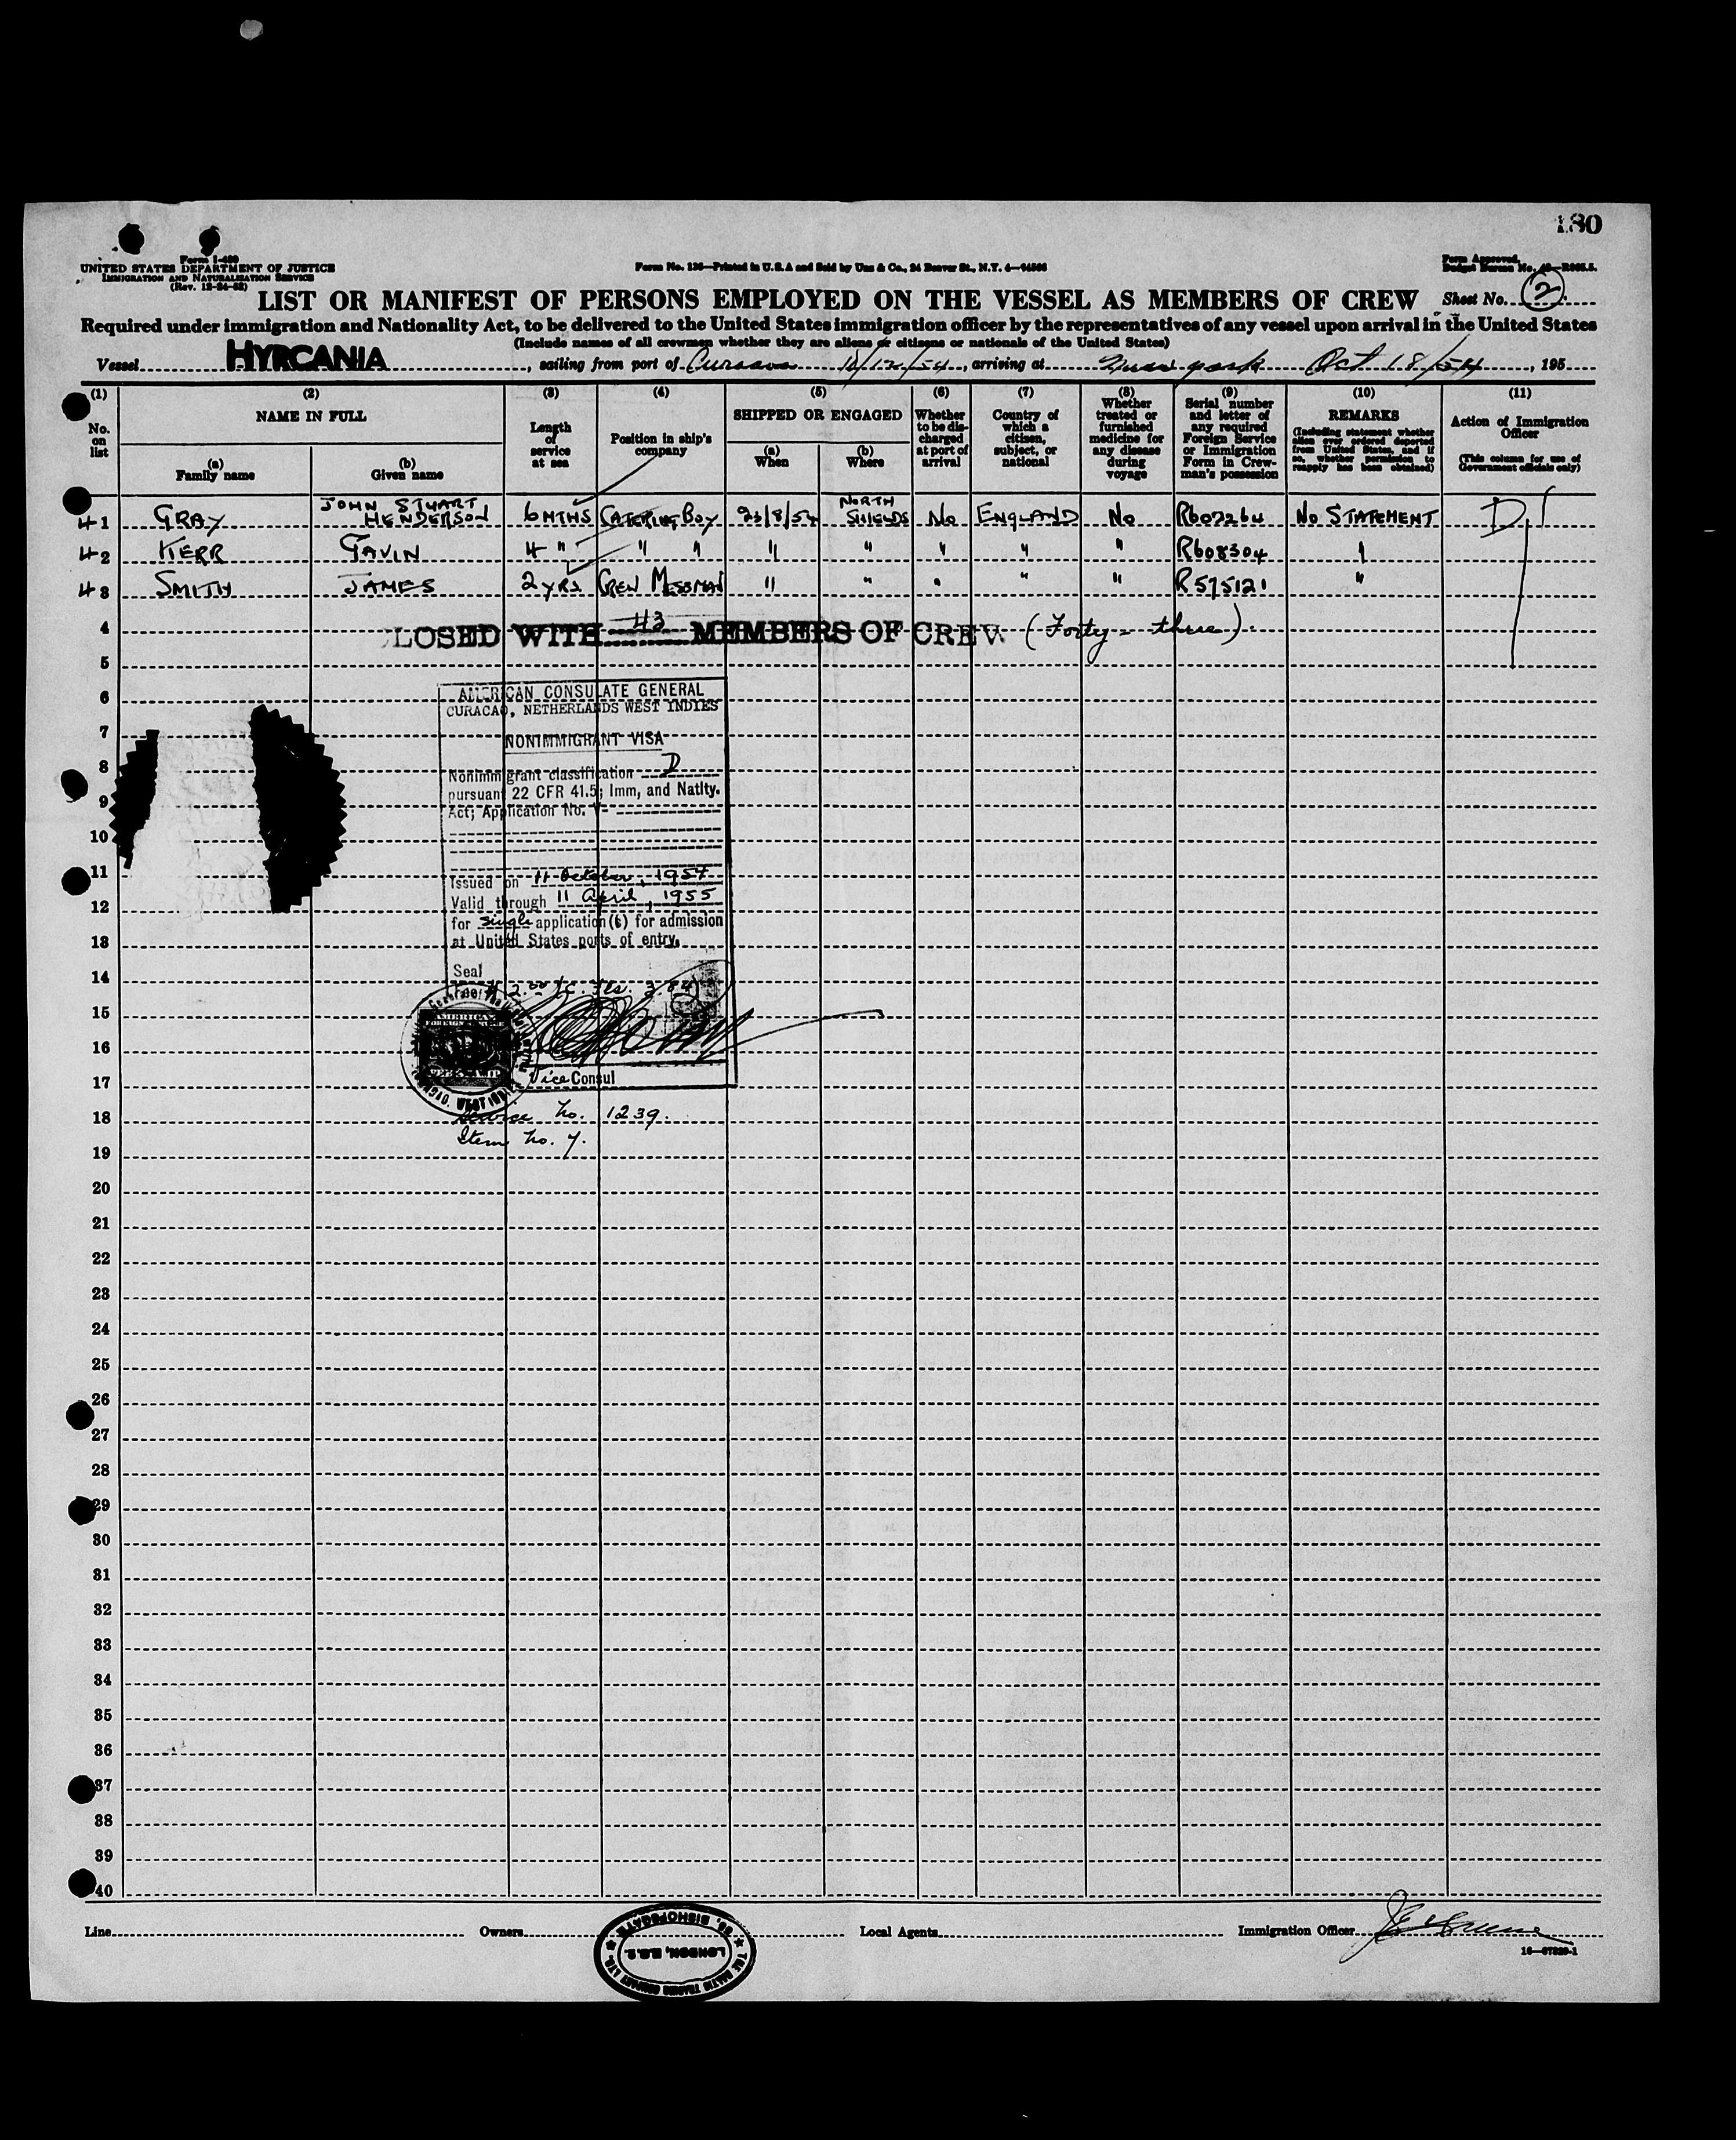 180
Form I-489
UNITED STATES DEPARTMENT OF JUSTICE
IMMIGRATION AND NATURALIZATION SERVICE
(Rev. 12-24-52)
Form No. 135—Printed in U.S.A and Sold by Unz & Co., 24 Beaver St., N.Y. 4—94506
Form Approved.
Budget Bureau No.
LIST OR MANIFEST OF PERSONS EMPLOYED ON THE VESSEL AS MEMBERS OF CREW Sheet No. 2
Required under immigration and Nationality Act, to be delivered to the United States immigration officer by the representatives of any vessel upon arrival in the United States
(Include names of all crewmen whether they are aliens or citizens or nationals of the United States)
Vessel HYRCANIA, sailing from port of Curacao 10/12/54, arriving at New York Oct 18/54, 195
(1) (2) (3) (4) (5) (6) (7) (8) (9) (10) (11)
No. on list
NAME IN FULL
(a) Family name
(b) Given name
Length of service at sea
Position in ship's company
SHIPPED OR ENGAGED
(a) When
(b) Where
Whether to be discharged at port of arrival
Country of which a citizen, subject, or national
Whether treated or furnished medicine for any disease during voyage
Serial number and letter of any required Foreign Service or Immigration Form in Crewman's possession
REMARKS
(Including statement whether alien ever ordered deported from United States, and if so, whether permission to reapply has been obtained)
Action of Immigration Officer
(This column for use of Government officials only)
41 GRAY JOHN STUART HENDERSON 6 MTHS CATERING BOY 23/8/54 NORTH SHIELDS No ENGLAND No R607264 NO STATEMENT D
42 KERR GAVIN 4 " " " " " " " " R608304 "
43 SMITH JAMES 2 YRS CREW MESSMAN " " " " " R575121 "
4 LOSED WITH 43 MEMBERS OF CREW (Forty = three).
5
6
7
8
9
10
11
12
13
14
15
16
17
18
19
20
21
22
23
24
25
26
27
28
29
30
31
32
33
34
35
36
37
38
39
40
AMERICAN CONSULATE GENERAL
CURACAO, NETHERLANDS WEST INDIES
NONIMMIGRANT VISA
Nonimmigrant classification D
pursuant 22 CFR 41.5; Imm, and Natlty.
Act; Application No. V-
Issued on 11 October, 1954
Valid through 11 April, 1955
for single application(s) for admission
at United States ports of entry.
Seal
Vice Consul
Service No. 1239.
Item No. 7.
Line Owners Local Agents Immigration Officer
THE BALTIC TRADING COMPANY LTD. BISHOPSGATE,
LONDON, E.C.2.
16—67329-1